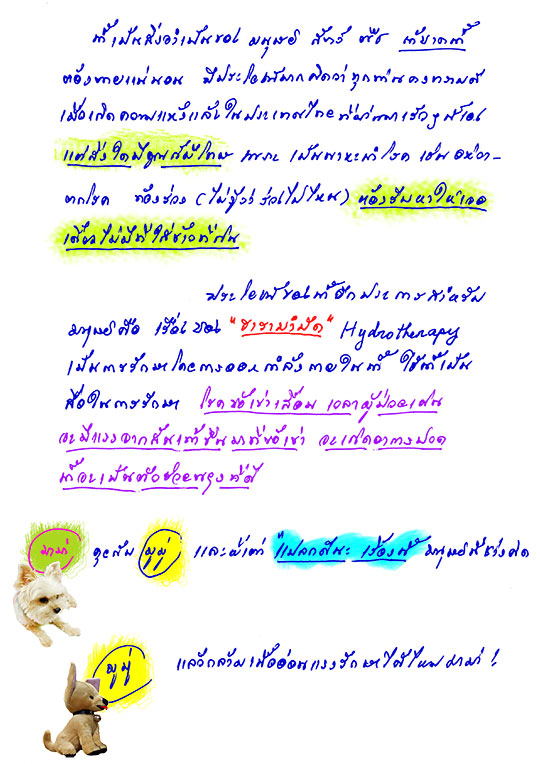 น้ำเป็นสิ่งจำเป็นของ มนุษย์ สัตว์ พืช ถ้าขาดน้ำ
ต้องตายแน่นอน มีประโยชน์มากคิดว่าทุกท่านคงทราบดี
เมื่อเกิดความแห้งแล้งในประเทศไทยที่ผ่านมาเร็วๆนี้เอง
แต่สิ่งใดมีคุณก็มีโทษ เพราะ เป็นพาหะนำโรค เช่น อหิวา-
ตกโรค ท้องร่วง (ไม่รู้ว่าร่วงไปไหน) ต้องรีบหาให้เจอ
เดี๋ยวไม่มีที่ใส่ข้าวที่กิน
ประโยชน์ของน้ำอีกประการสำหรับ
มนุษย์คือ เรื่องของ "ธาราบำบัด" Hydrotherapy
เป็นการรักษาโดยการออกกำลังกายในน้ำ ใช้น้ำเป็น
สื่อในการรักษา โรคข้อเข่าเสื่อม เวลาผู้ป่วยเดิน
จะมีแรงจากส้นเท้าขึ้นมาที่ข้อเข่า จะเกิดอาการปวด
น้ำจะเป็นตัวช่วยพยุงที่ดี
มาม่า คุยกับ มูมู่ และผู้เฒ่า "แปลกดีนะ เรื่องน้ำ มนุษย์นี่ช่างคิด
มูมู่ แล้วกล้ามเนื้ออ่อนแรงรักษาได้ไหมมาม่า !